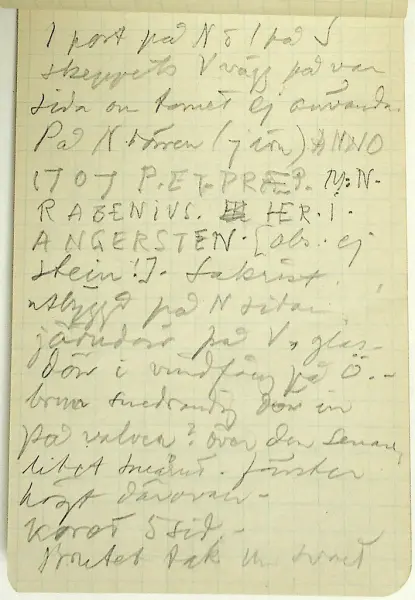 1 port på N o 1 på S
skeppets V vägg på var
sida om tornet ej använda.
På N dörren (järn) ANNO
1707 P. ET. PRÆP. M: N.
RABENIUS. HER. I.
ANGERSTEN. [obs. ej
stein!]. Sakrist.
utbyggd på N sidan
järndörr på V, glas-
dörr i vindfång på Ö. -
brun dörr in
på valven? över den senare,
litet
högt därovan -
koret 5 sid. -
Brutet tak m svart